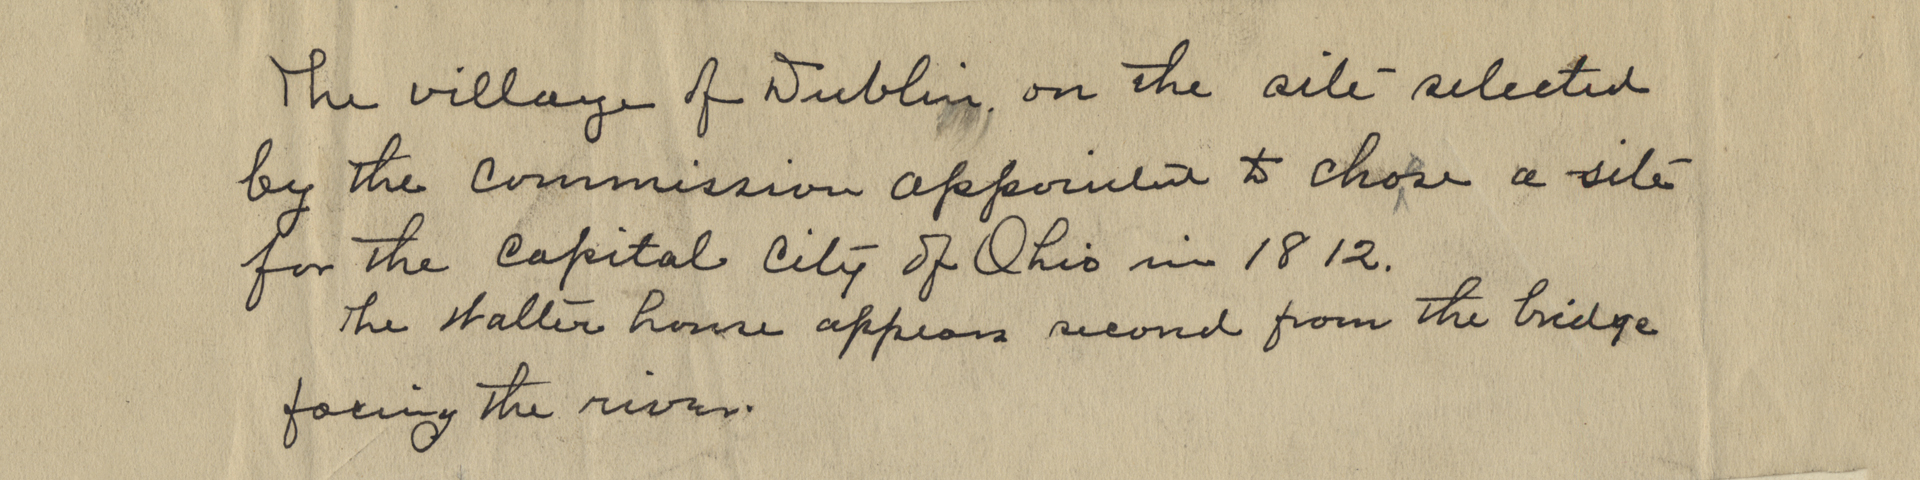 The village of Dublin, on the site selected
by the commission appointed to chose a site
for the capital city of Ohio in 1812.
The Walter house appears second from the bridge
facing the river.